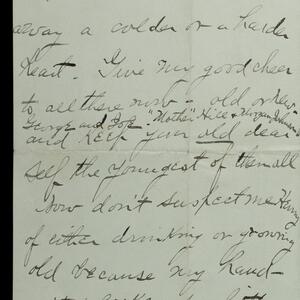 away a colder or a harder
heart. Give my good cheer
to all there now - old or new -
George and "Mother" Hill &
and keep your old dear
self the youngest of them all
Now don't suspect me Henry
of either drinking or growing
old because my hand-